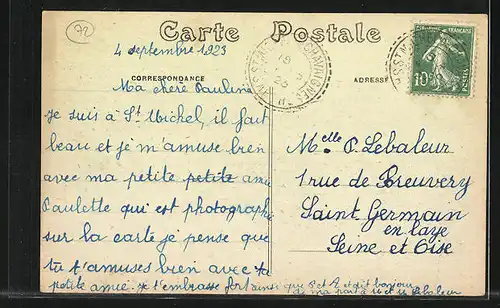 72
Carte Postale
4 septembre 1923
CORRESPONDANCE
ADRESSE
10c
Ma chère Pauline
je suis à St Michel, il fait
beau et je m'amuse bien
avec ma petite petite amie
Paulette qui est photographi
sur la carte je pense que
tu t'amuses bien avec ta
petite amie. je t'embrasse fort ainsi que
bonjour
de ma part à
Lebaleur
Melle P. Lebaleur
1 rue de Breuvery
Saint Germain
en Laye
Seine et Oise